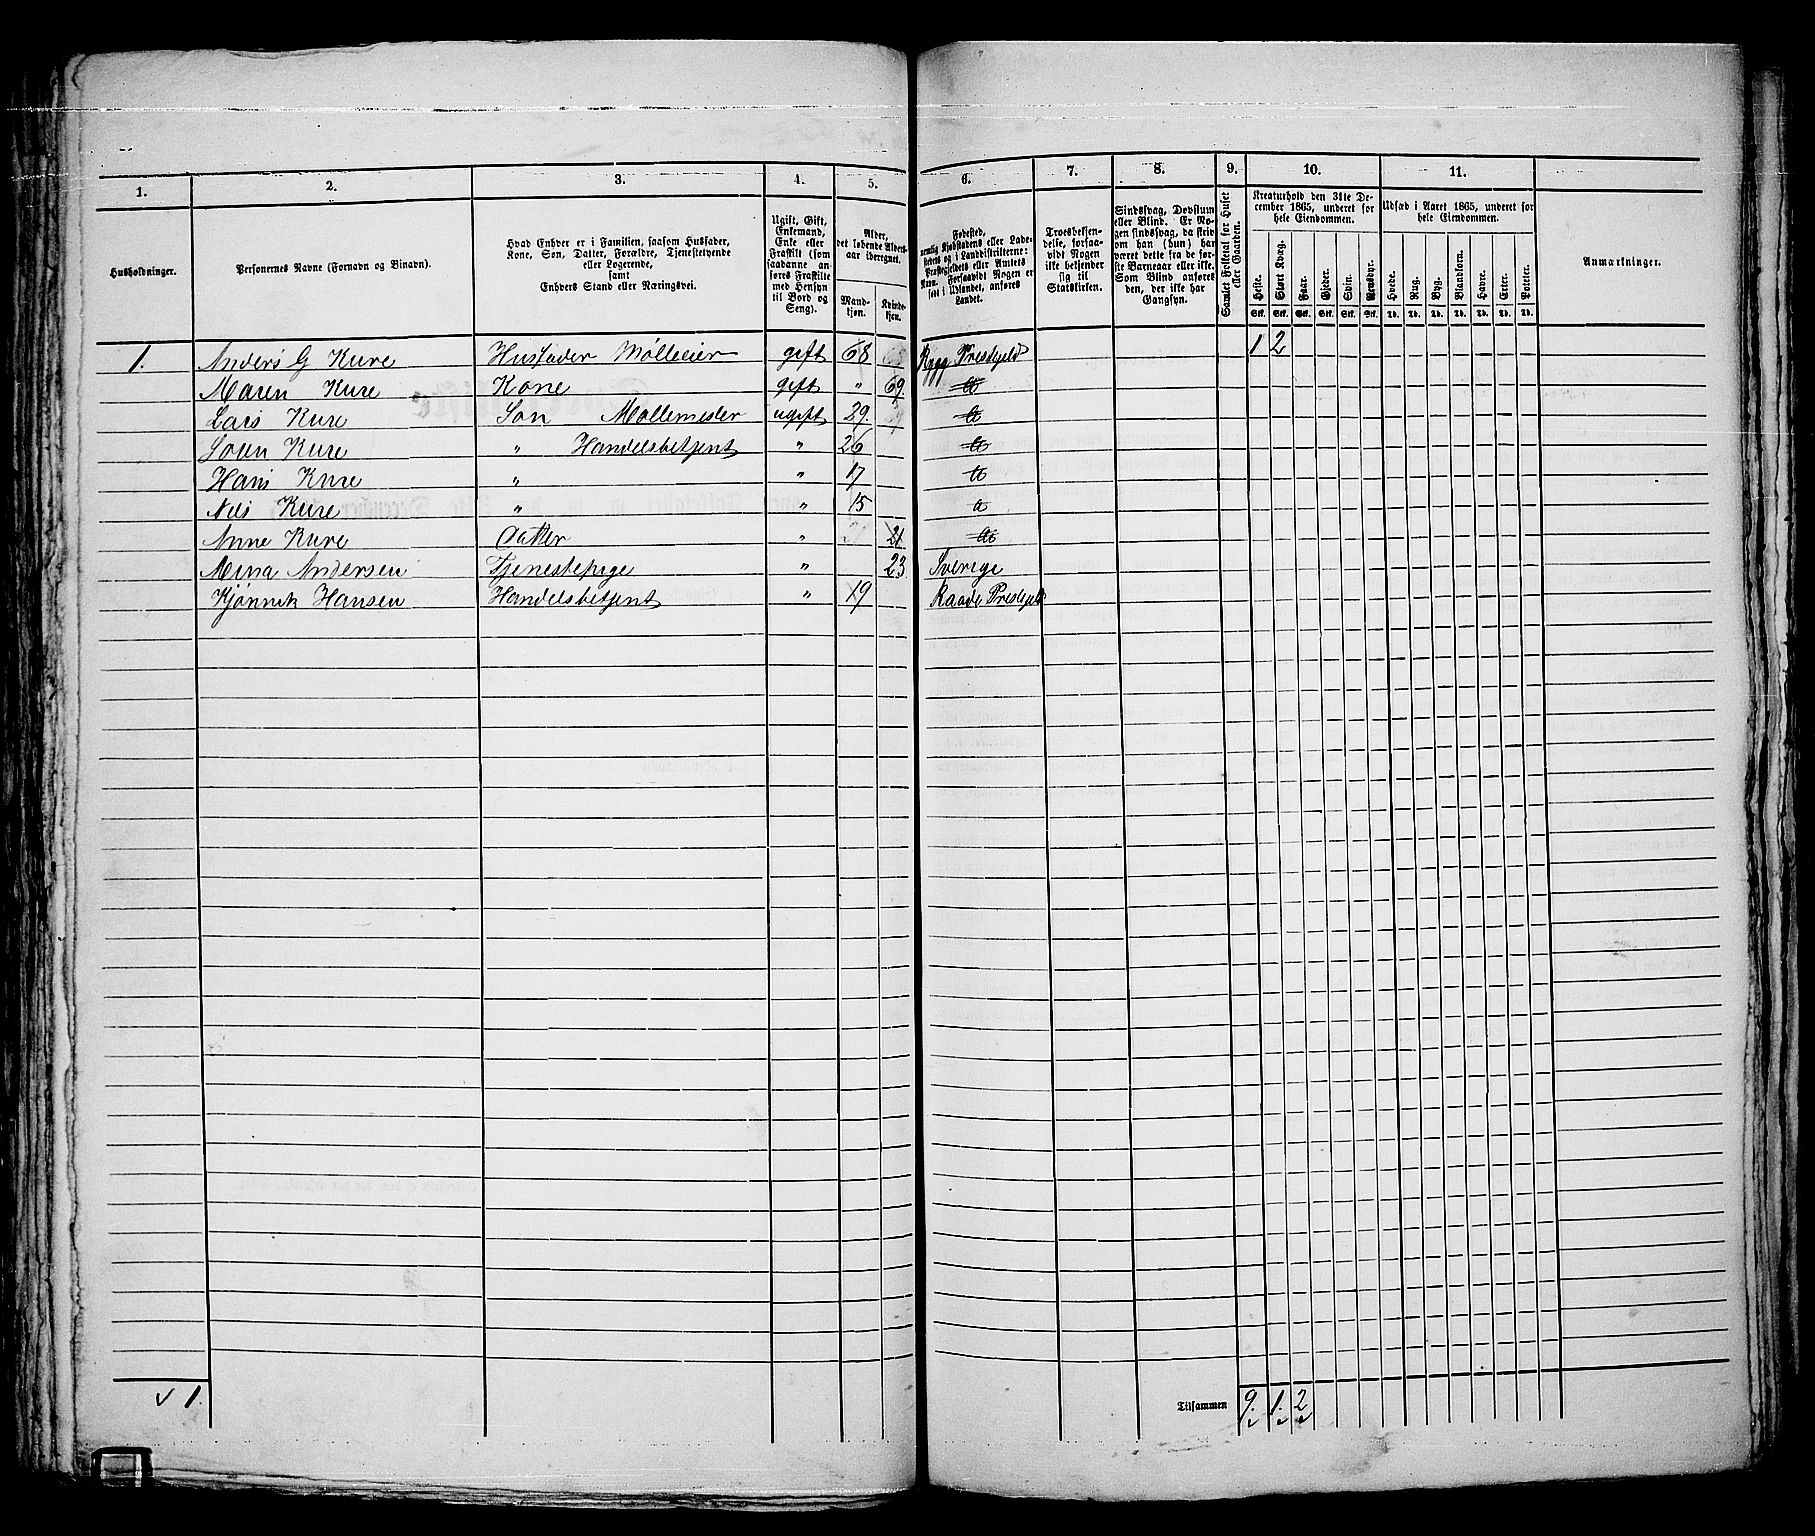 1. 2. 3. 4. 5. 6. 7. 8. 9. 10. 11.
Husholdninger.
Personernes Navne (Fornavn og Binavn).
Hvad Enhver er i Familien, saasom Husfader,
Kone, Søn, Datter, Forældre, Tjenestetyende
eller Logerende,
samt
Enhvers Stand eller Næringsvei.
Ugift, Gift,
Enkemand,
Enke eller
Fraskilt (som
saadanne an-
føres Fraskilte
med Hensyn
til Bord og
Seng).
Alder,
det løbende Alders-
aar iberegnet.
Mand-
kjøn.
Kvinde-
kjøn.
Fødested,
nemlig Kjøbstadens eller Lade-
stedets og i Landdistrikterne:
Præstegjeldets eller Amtets
Navn. Forsaavidt Nogen er
født i Udlandet, anføres
Landet.
Troesbekjen-
delse, forsaa-
vidt Nogen
ikke bekjender
sig til
Statskirken.
Sindssvag, Døvstum
eller Blind. Er No-
gen sindssvag, da skriv
om han (hun) har
været dette fra de før-
ste Barneaar eller ikke.
Som Blind anføres
den, der ikke har
Gangsyn.
Samlet Folketal for Huset
eller Gaarden.
Kreaturhold den 31te De-
cember 1865, underet for
hele Eiendommen.
Heste. Stort Kvæg. Faar. Gjeder. Svin. Rensdyr.
Stk. Stk. Stk. Stk. Stk. Stk.
Udsæd i Aaret 1865, underet for
hele Eiendommen.
Hvede. Rug. Byg. Blandkorn. Havre. Erter. Poteter.
Td. Td. Td. Td. Td. Td. Td.
Anmærkninger.
1. Anders G Kure Husfader Mølleeier gift 68 Rygge Prestegjeld 1 2
Maren Kure Kone gift " 69
Lars Kure Søn Møllemester ugift 29
Søren Kure " Handelsbetjent " 26
Hans Kure " " 17
Nils Kure " " 15
Anne Kure Datter " 21
Mina Andersen Tjenestepige " 23 Sverige
Kjønnik Hansen Handelsbetjent " 19 Raade Prestegjeld
1. Tilsammen 9. 1. 2